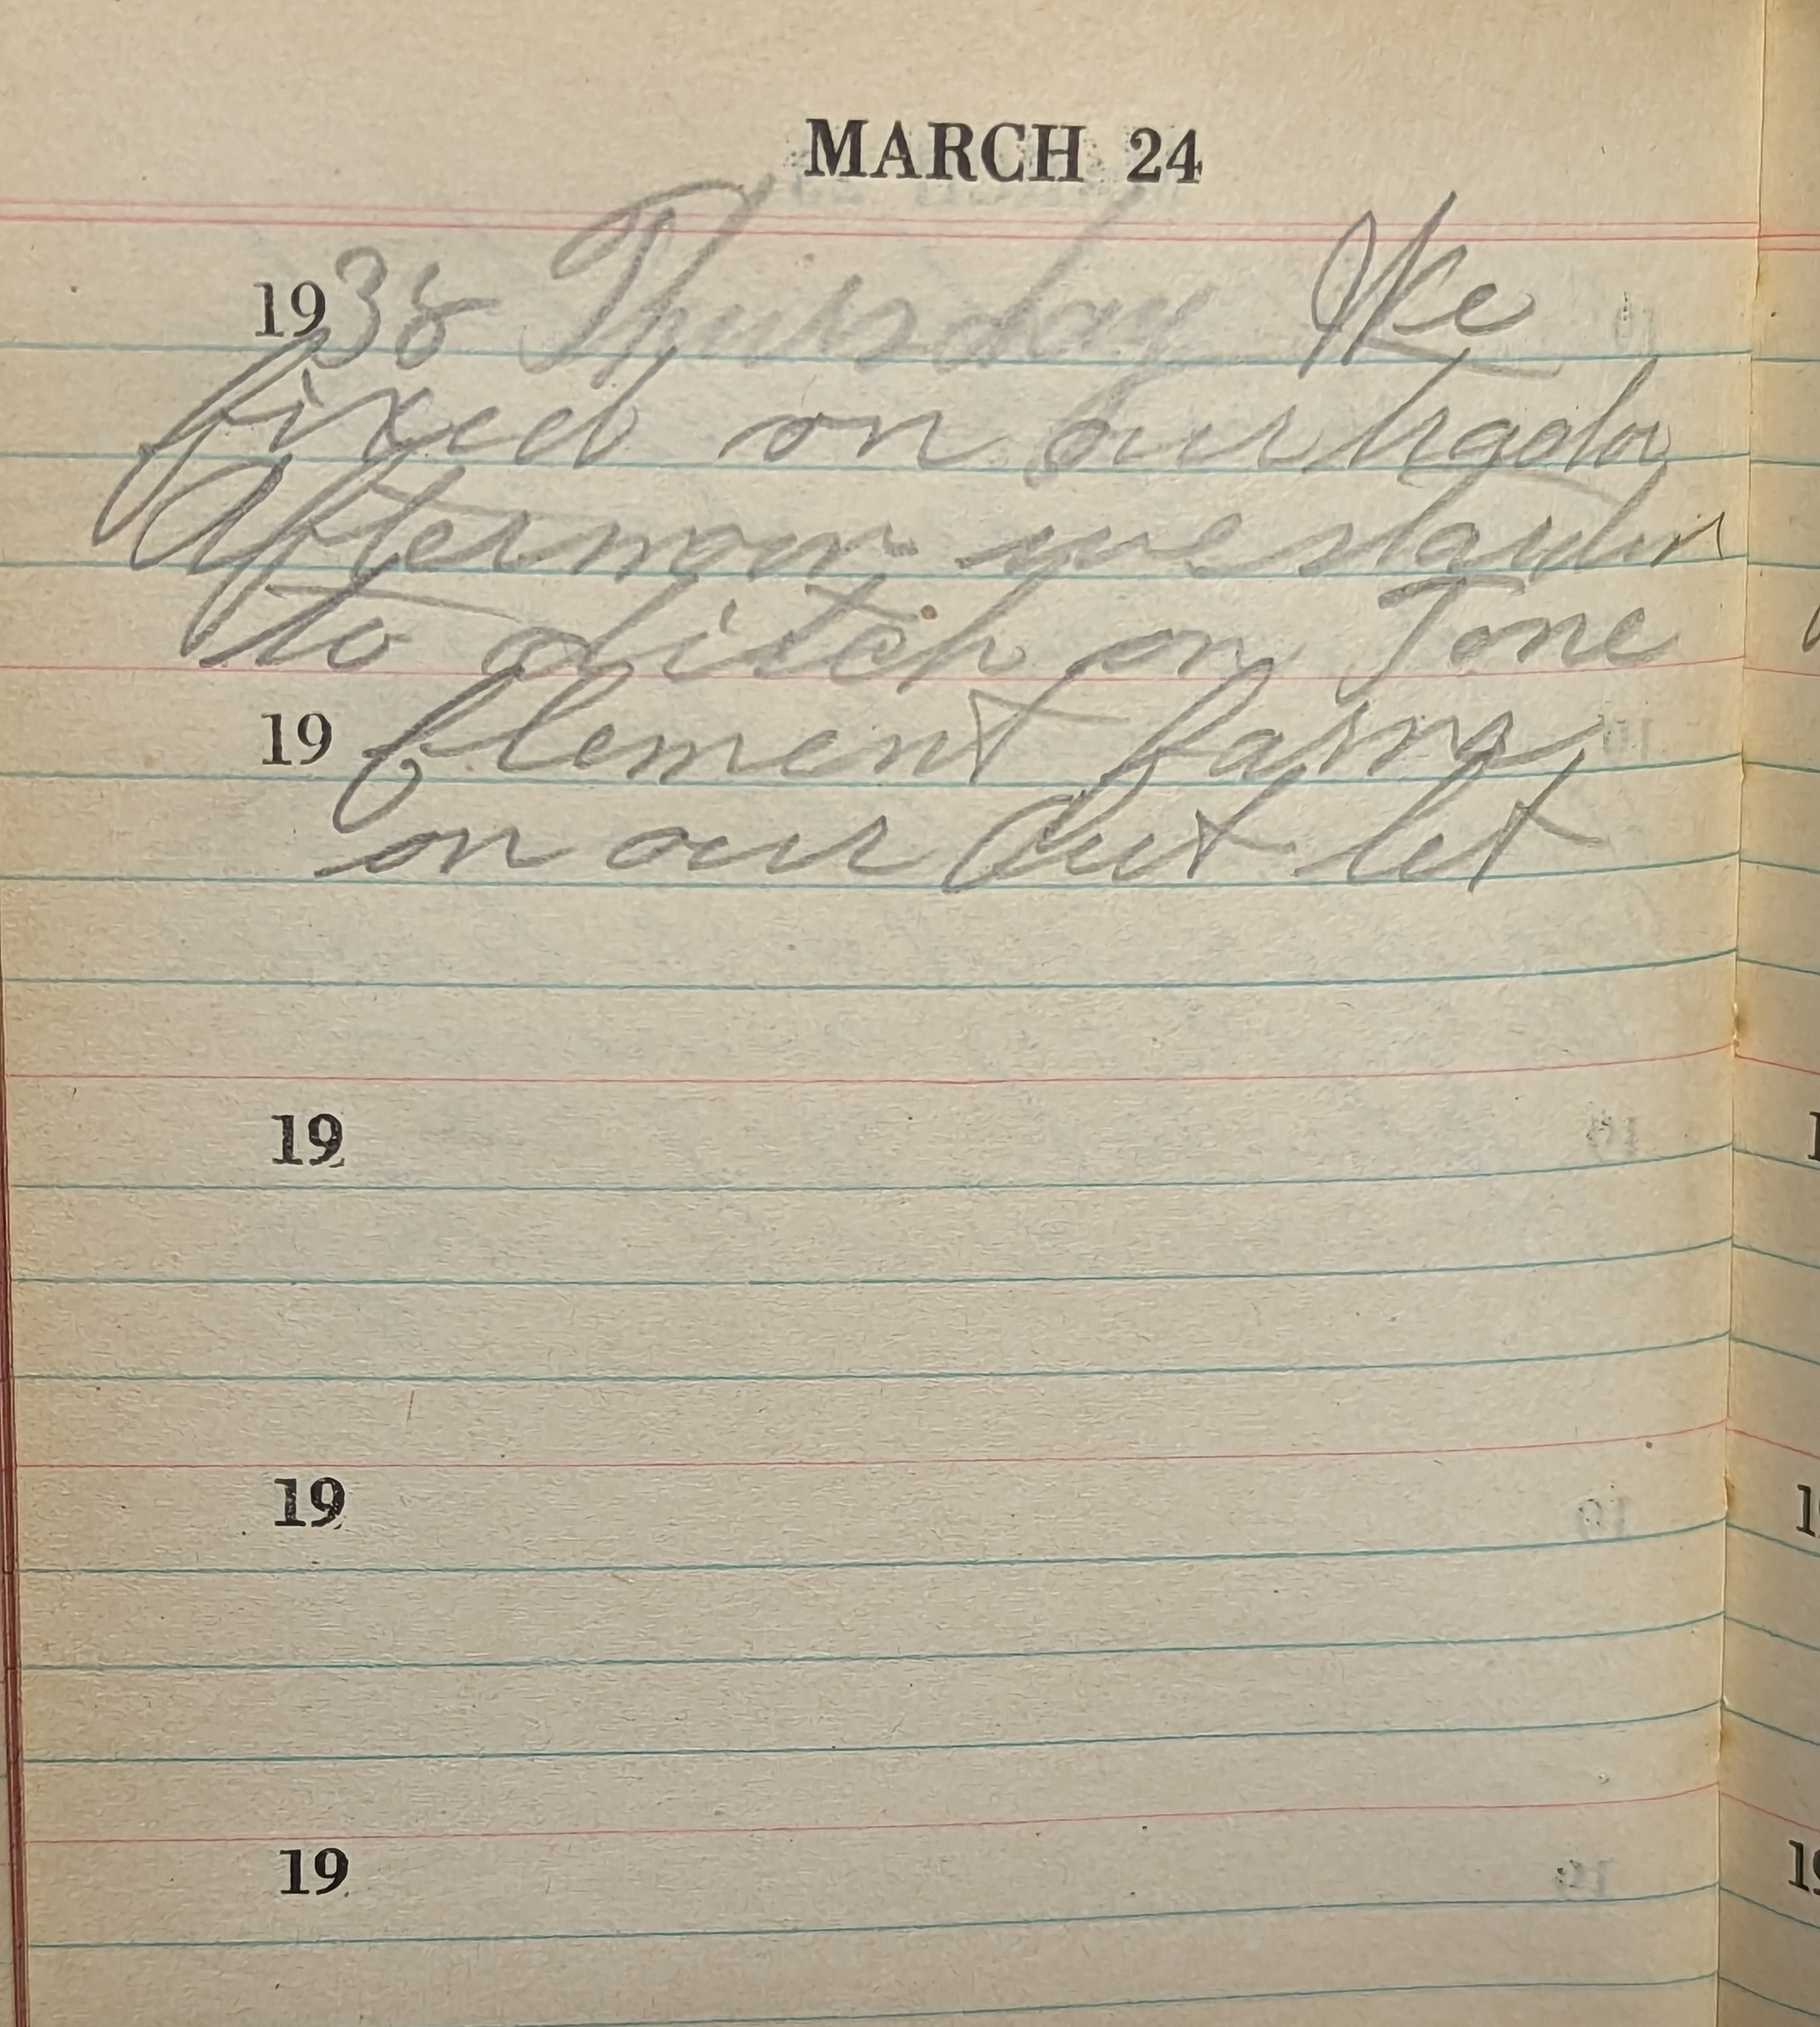 MARCH 24
1938 Thursday Ike
fixed on our
Afternoon we
to ditch on Tone
19 Clement farm
on our Out let
19
19
19